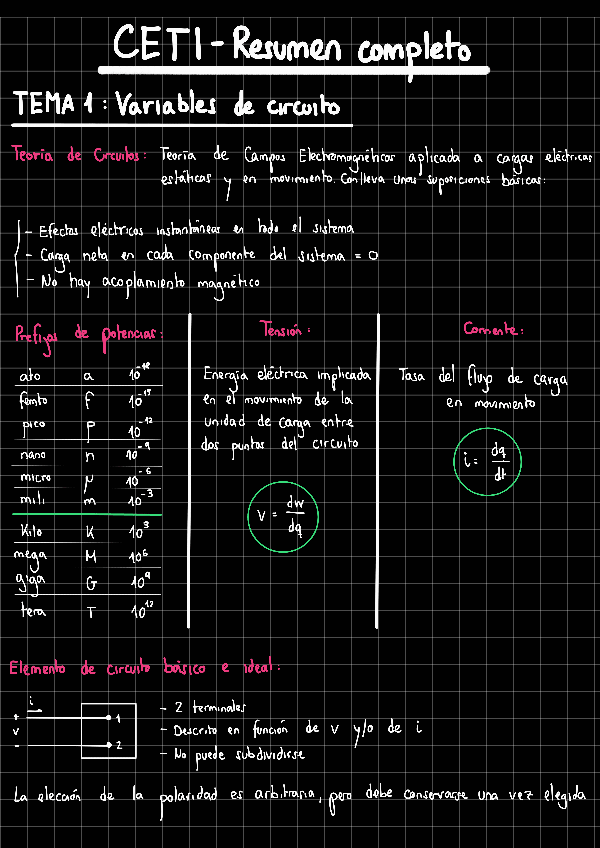 CETI - Resumen completo
TEMA 1: Variables de circuito
Teoría de Circuitos: Teoría de Campos Electromagnéticos aplicada a cargas eléctricas
estáticas y en movimiento. Conlleva unas suposiciones básicas:
- Efectos eléctricos instantáneos en todo el sistema
- Carga neta en cada componente del sistema = 0
- No hay acoplamiento magnético
Prefijos de potencias:
ato a 10^-18
femto f 10^-15
pico p 10^-12
nano n 10^-9
micro μ 10^-6
mili m 10^-3
Kilo K 10^3
mega M 10^6
giga G 10^9
tera T 10^12
Tensión:
Energía eléctrica implicada
en el movimiento de la
unidad de carga entre
dos puntos del circuito
v = dw/dq
Corriente:
Tasa del flujo de carga
en movimiento
i = dq/dt
Elemento de circuito básico e ideal:
i
+ 1
v
- 2
- 2 terminales
- Descrito en función de v y/o de i
- No puede subdividirse
La elección de la polaridad es arbitraria, pero debe conservarse una vez elegida